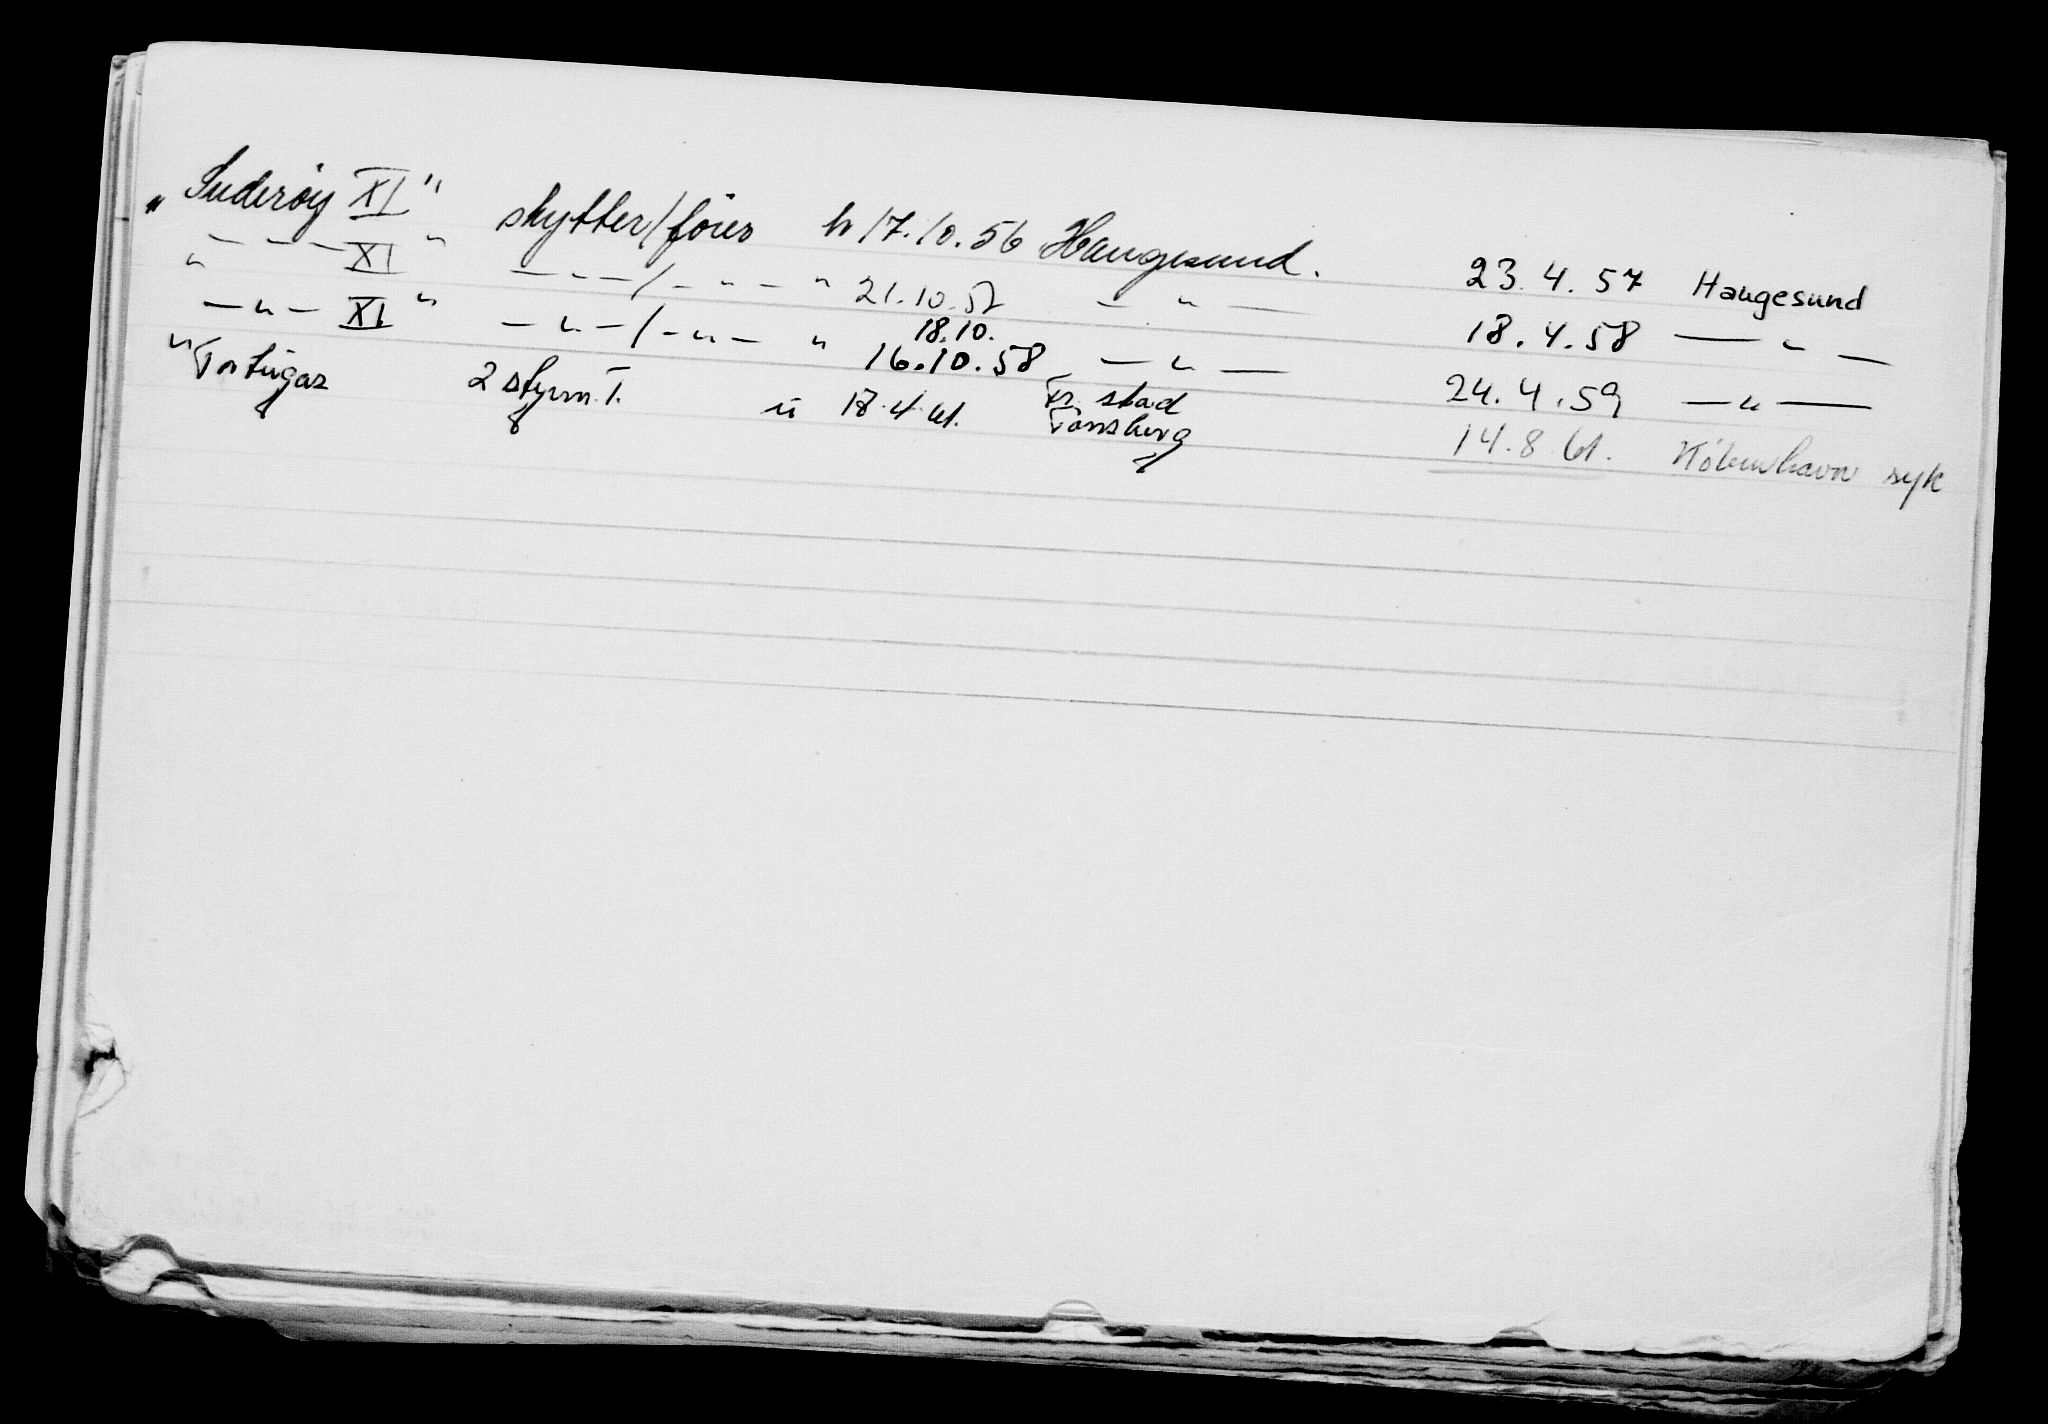 „Suderøy XI" skytter/fører h 17.10.56 Haugesund. 23.4.57 Haugesund
" — — — XI " — — — / — " — " 21.10.57 — " — 18.4.58 — " —
— " — XI " — " — / — " — " 18.10. 16.10.58 — " — 24.4.59 — " —
" Tortugas 2 styrm T. u 18.4.61. Fr. stad Tønsberg 14.8.61. København syk